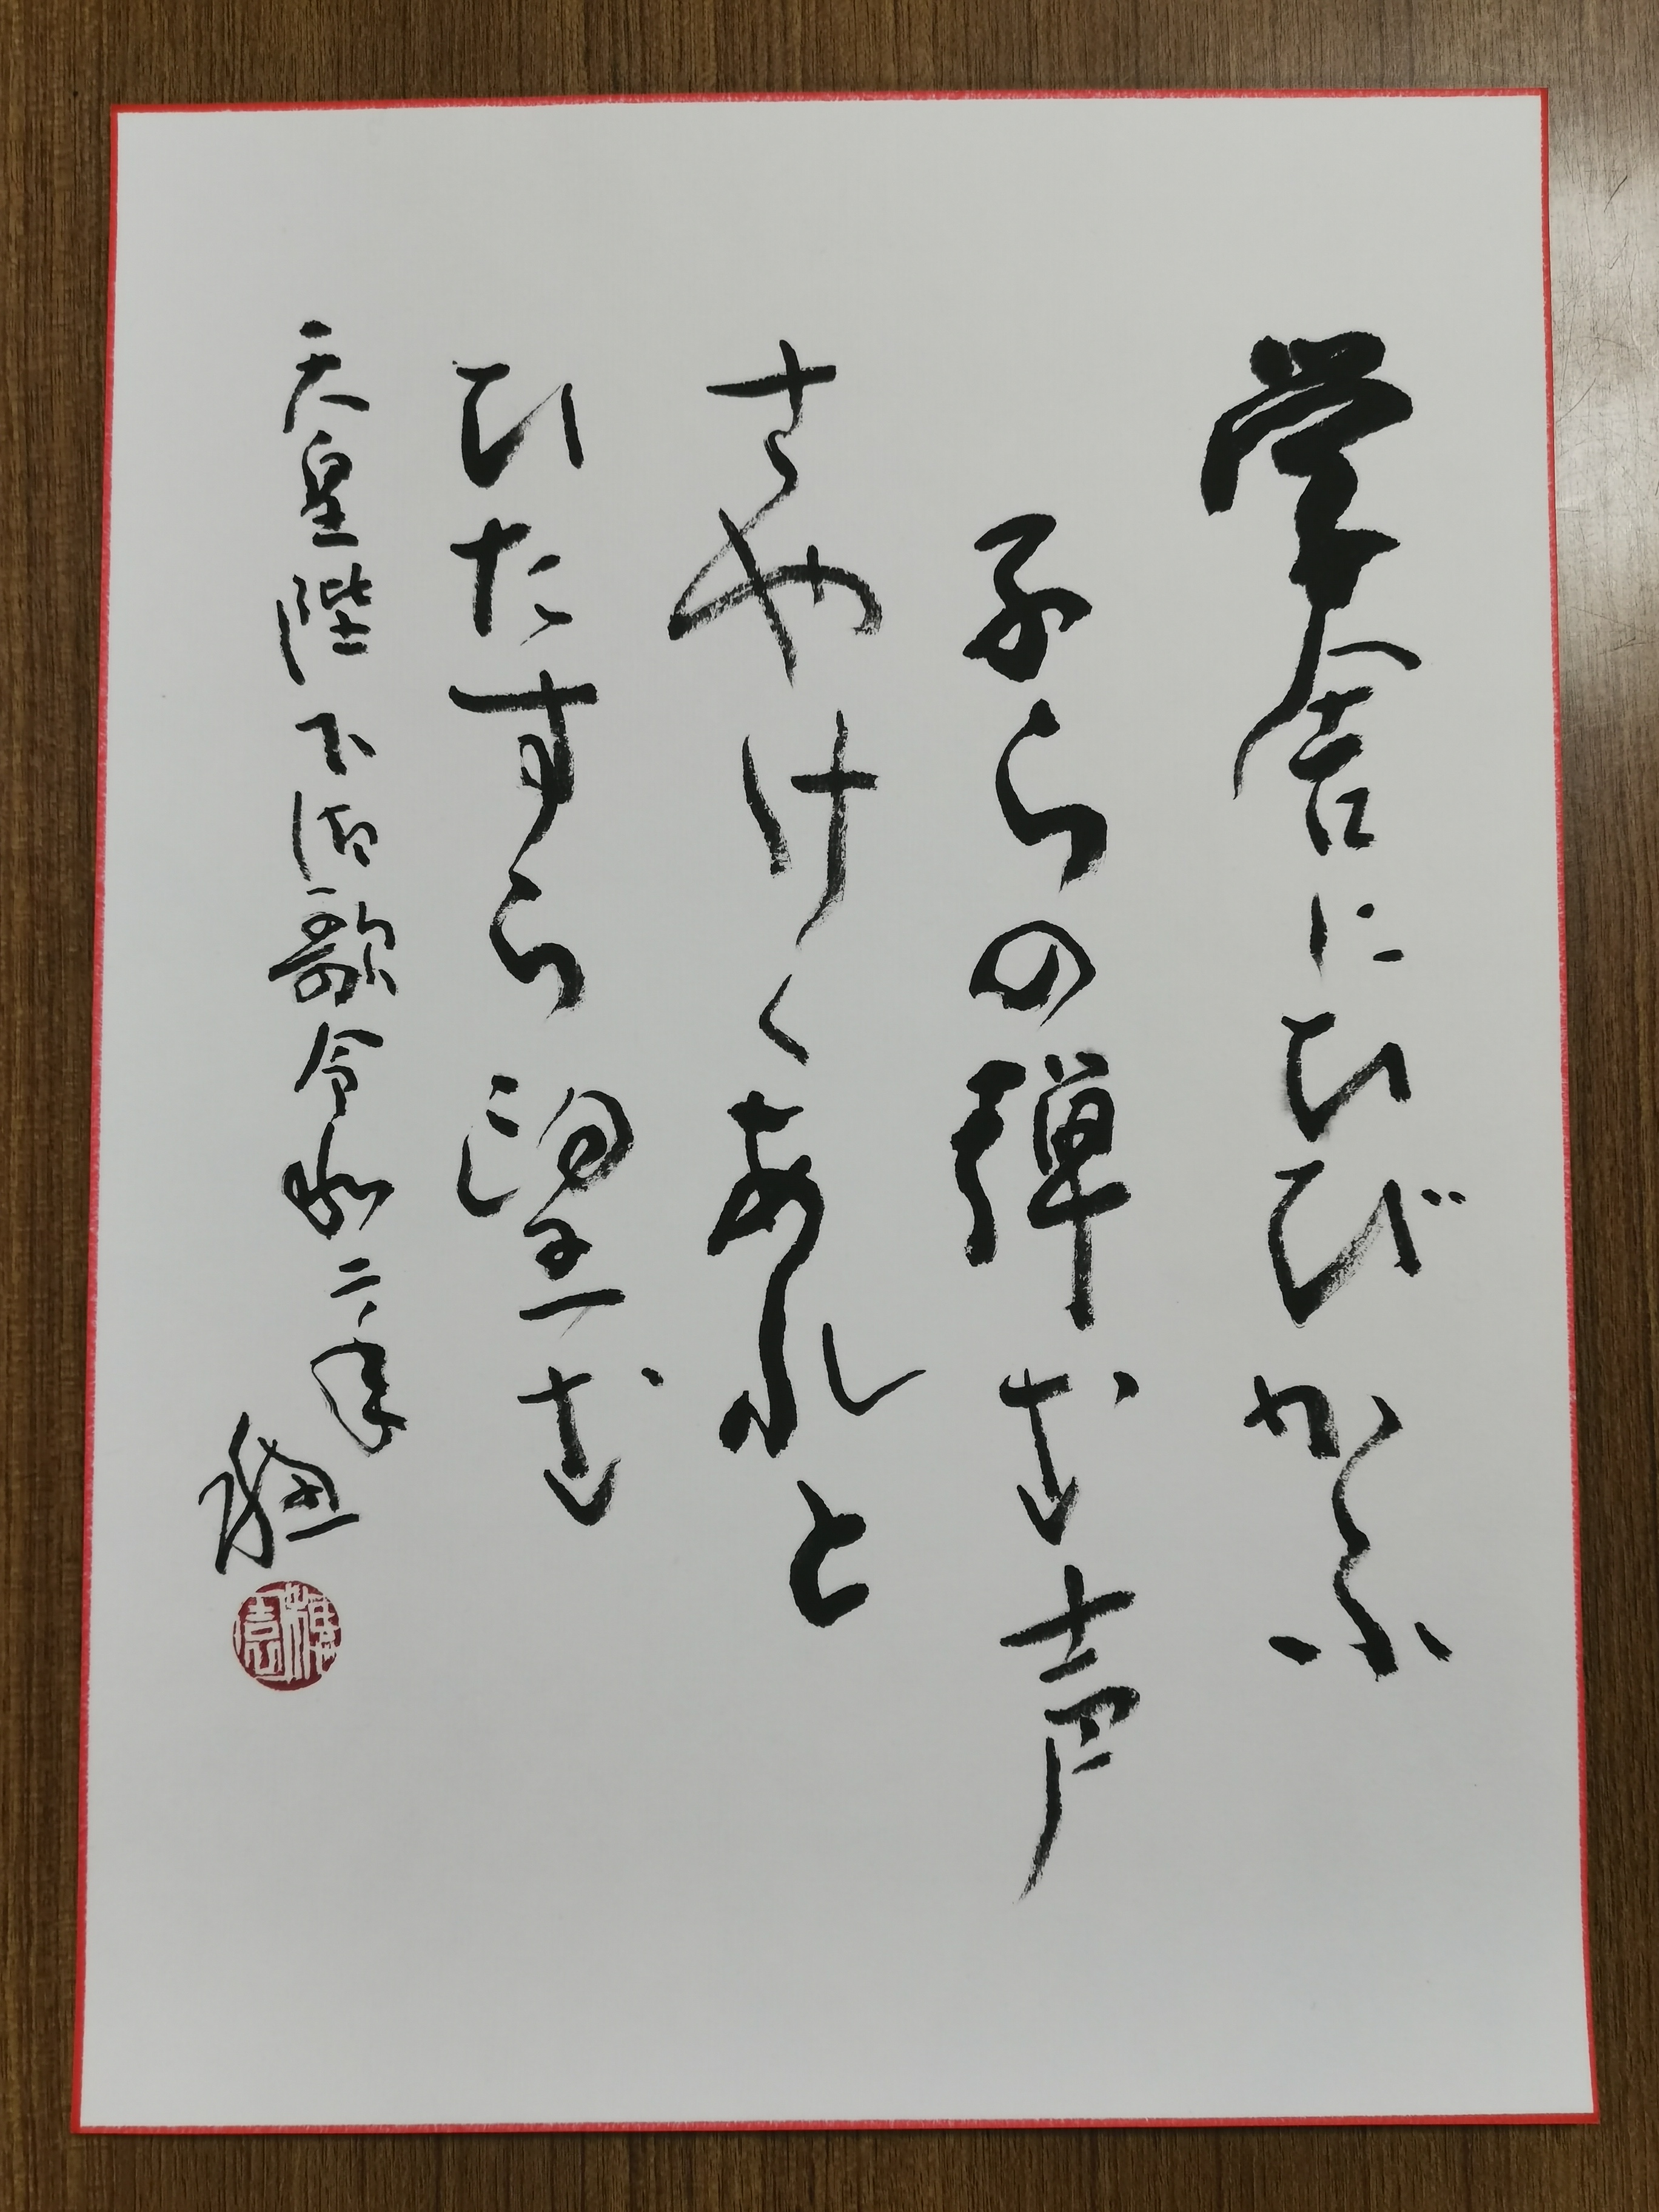 学舎にひびかふ
子らの弾む声
さやけくあれと
ひたすら望む
天皇陛下御歌令和二年